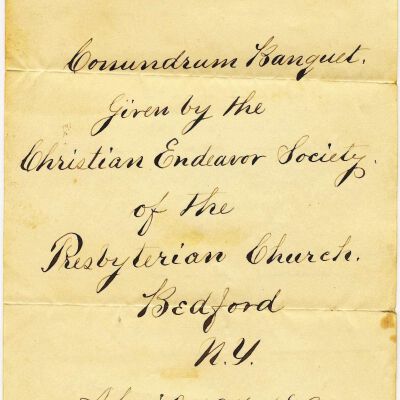 Conundrum Banquet.
Given by the
Christian Endeavor Society.
of the
Presbyterian Church.
Bedford
N.Y.